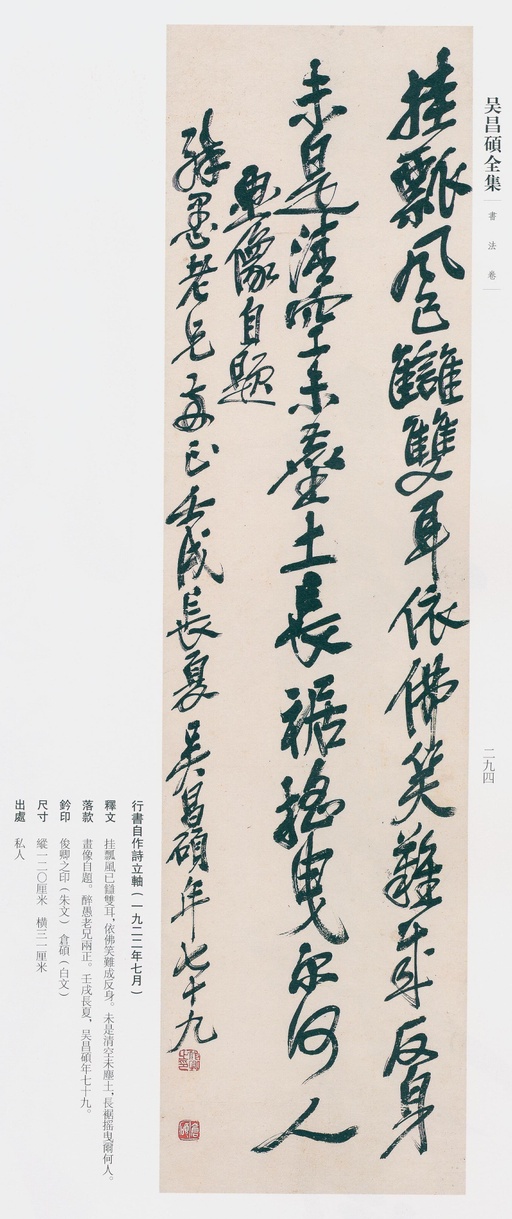 吴昌碩全集
書法卷
二九四
挂瓢風已讎雙耳依佛笑難成反身
未是清空未塵土長裾摇曳尔何人
畫像自題
醉愚老兄兩正壬戌長夏吴昌碩年七十九
行書自作詩立軸（一九二二年七月）
釋文 挂瓢風已讎雙耳，依佛笑難成反身。未是清空未塵土，長裾摇曳爾何人。
落款 畫像自題。醉愚老兄兩正。壬戌長夏，吴昌碩年七十九。
鈐印 俊卿之印（朱文） 倉碩（白文）
尺寸 縱一二〇厘米 橫三一厘米
出處 私人